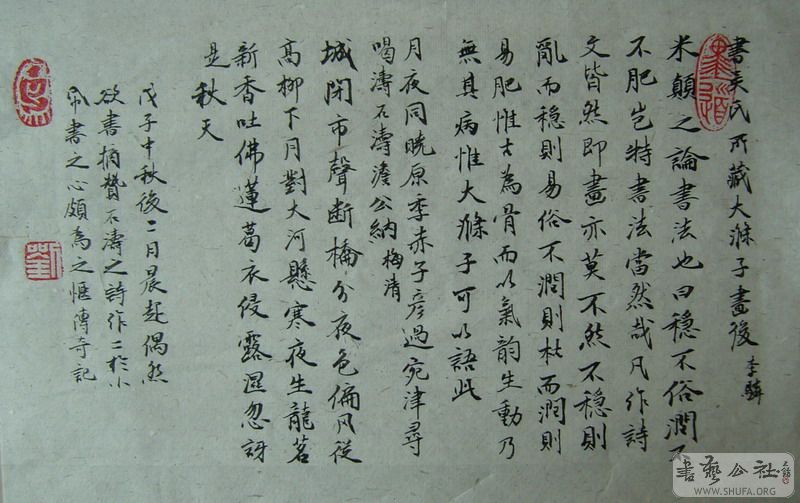 書吴氏所藏大滌子畫後 李驎
米顛之論書法也曰穩不俗潤不
不肥豈特書法當然哉凡作詩
文皆然即畫亦莫不然不穩則
亂而穩則易俗不潤則枯而潤則
易肥惟古為骨而以氣韵生動乃
無其病惟大滌子可以語此
月夜同曉原季赤子彦過宛津尋
喝濤石濤澹公納 梅清
城閉市聲断橋分夜色偏風從
高柳下月對大河懸寒夜生龍茗
新香吐佛蓮葛衣侵露濕忽訝
是秋天
戊子中秋後二日晨起偶然
欲書摘贊石濤之詩作二於小
帋書之心頗為之愜傳奇記
書藝公社
WWW.SHUFA.ORG